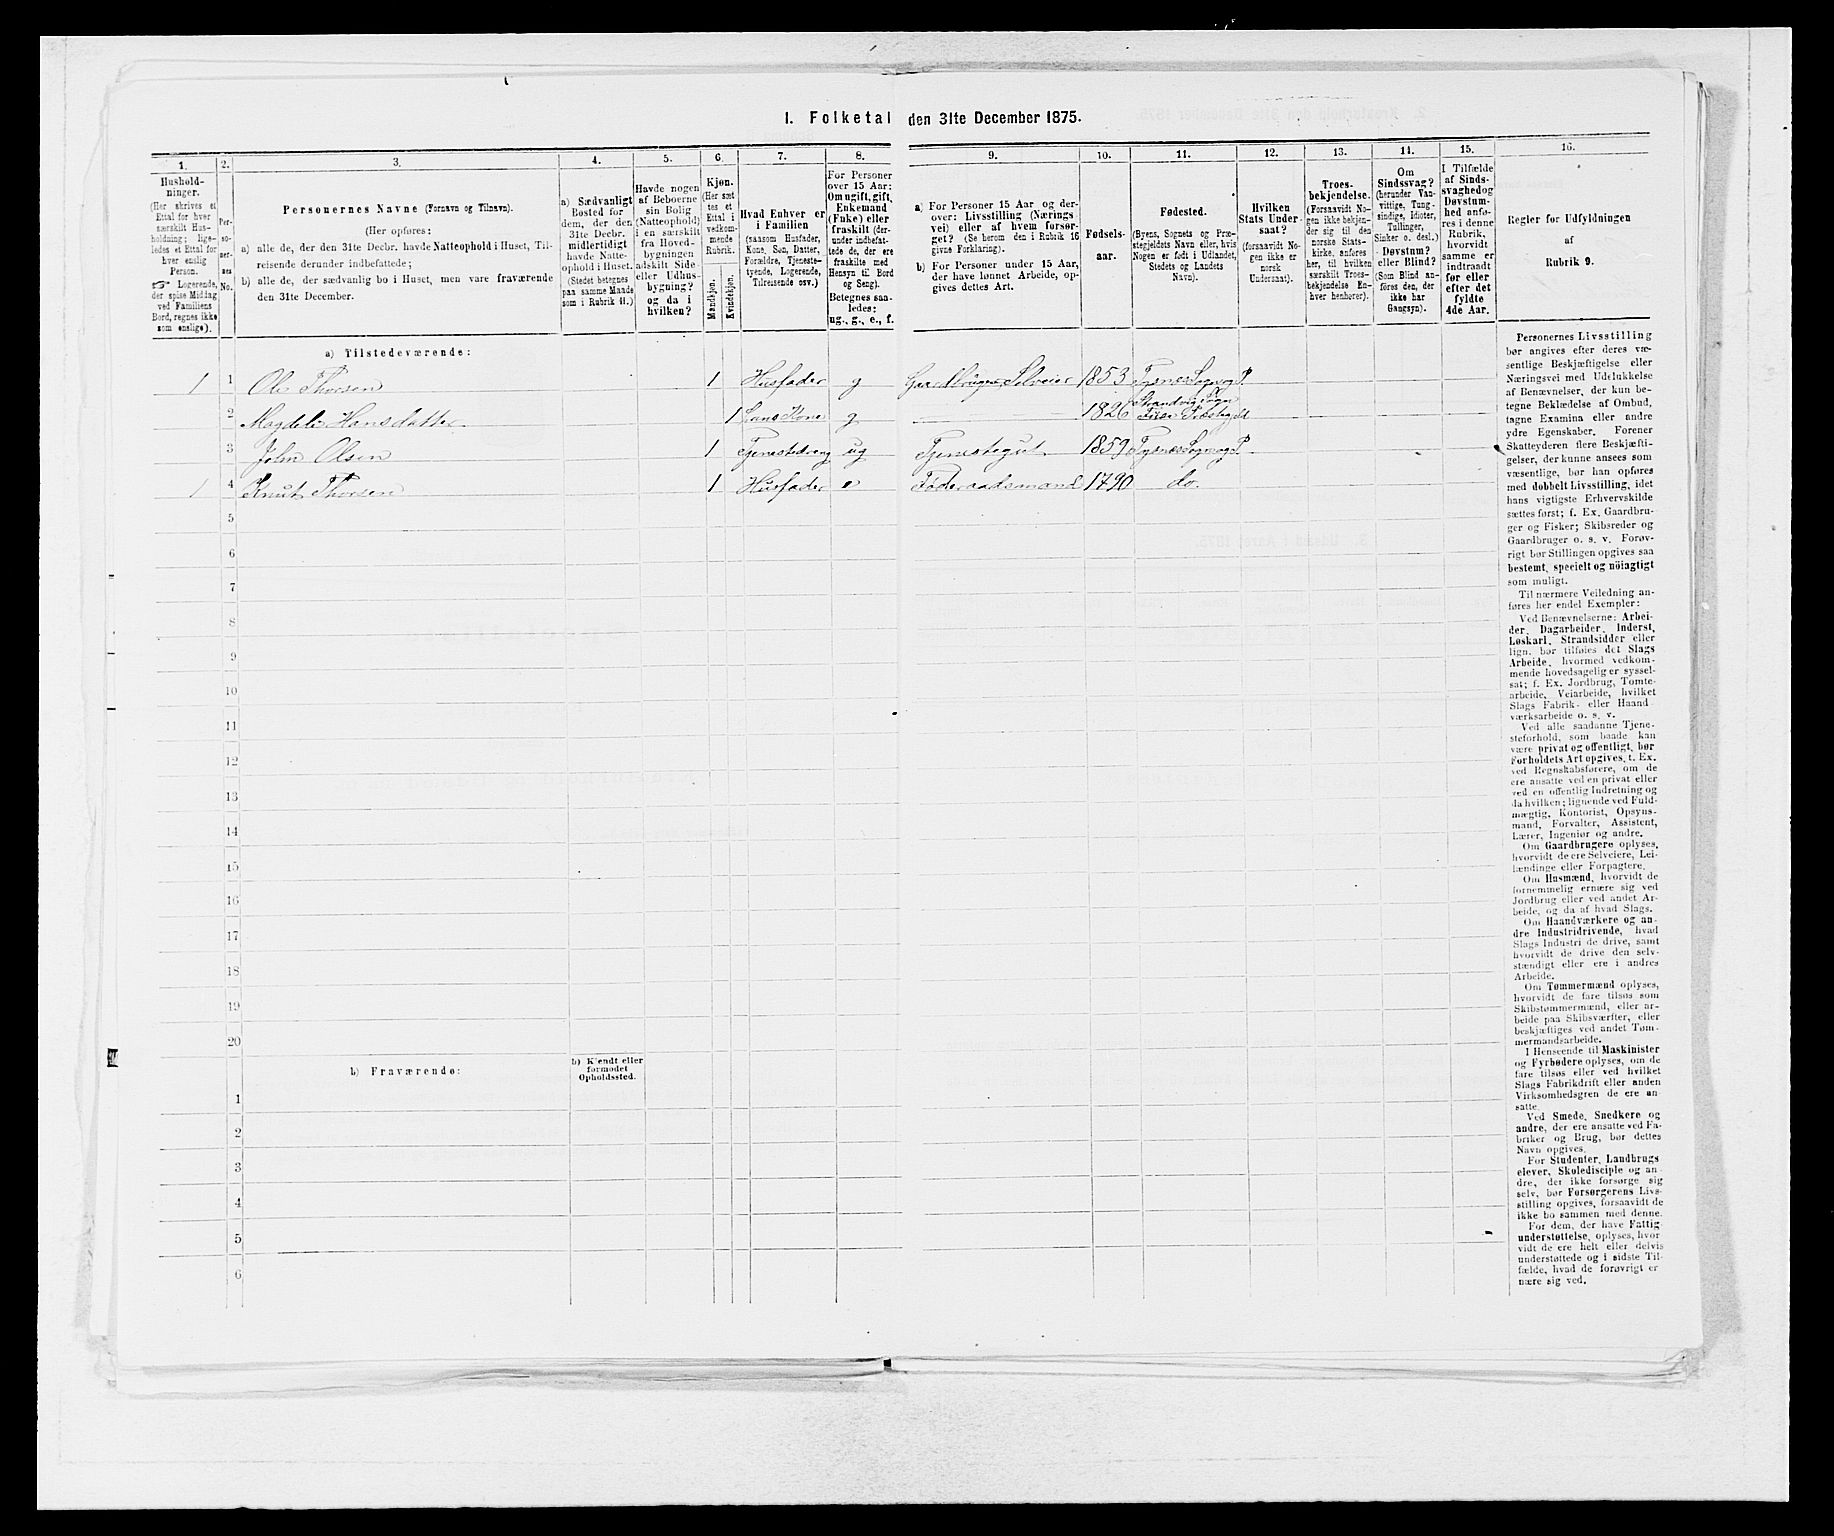 1. Folketal den 31te December 1875.
1. 2. 3. 4. 5. 6. 7. 8. 9. 10. 11. 12. 13. 14. 15. 16.
Hushold-
ninger.
(Her skrives et
Ettal for hver
særskilt Hus-
holdning; lige-
ledes et Ettal for
hver enslig
Person.
☞ Logerende,
der spise Middag
ved Familiens
Bord, regnes ikke
som enslige).
Per-
so-
ner-
nes
No.
Personernes Navne (Fornavn og Tilnavn).
(Her opføres:
a) alle de, der den 31te Decbr. havde Natteophold i Huset, Til-
reisende derunder indbefattede;
b) alle de, der sædvanlig bo i Huset, men vare fraværende
den 31te December.
a) Sædvanligt
Bosted for
dem, der den
31te Decbr.
midlertidigt
havde Natte-
ophold i Huset.
(Stedet betegnes
paa samme Maade
som i Rubrik 11.)
Havde nogen
af Beboerne
sin Bolig
(Natteophold)
i en særskilt
fra Hoved-
bygningen
adskilt Side-
eller Udhus-
bygning?
og da i
hvilken?
Kjøn.
(Her sæt
tes et
Ettal i
vedkom-
mende
Rubrik.
Mandkjøn.
Kvindekjøn.
Hvad Enhver er
i Familien
(saasom Husfader,
Kone, Søn, Datter,
Forældre, Tjeneste-
tyende, Logerende,
Tilreisende osv.)
For Personer
over 15 Aar:
Om ugift, gift,
Enkemand
(Enke) eller
fraskilt (der-
under indbefat-
tede de, der ere
fraskilte med
Hensyn til Bord
og Seng).
Betegnes saa-
ledes:
ug., g., e., f.
a) For Personer 15 Aar og der-
over: Livsstilling (Nærings
vei) eller af hvem forsør-
get? (Se herom den i Rubrik 16
givne Forklaring).
b) For Personer under 15 Aar,
der have lønnet Arbeide, op-
gives dettes Art.
Fødsels-
aar.
Fødested.
(Byens, Sognets og Præ-
stegjeldets Navn eller, hvis
Nogen er født i Udlandet,
Stedets og Landets
Navn).
Hvilken
Stats Under-
saat?
(forsaavidt No-
gen ikke er
norsk
Undersaat).
Troes-
bekjendelse.
(Forsaavidt No-
gen ikke bekjen-
der sig til den
norske Stats-
kirke, anføres
her, til hvilken
særskilt Troes-
bekjendelse En-
hver henhører).
Om
Sindssvag?
(herunder Van-
vittige, Tung-
sindige, Idioter,
Tullinger,
Sinker o. desl.)
Døvstum?
eller Blind?
(Som Blind an-
føres den, der
ikke har
Gangsyn).
I Tilfælde
af Sinds-
svaghed og
Døvstum-
hed anfø-
res i denne
Rubrik,
hvorvidt
samme er
indtraadt
før eller
efter det
fyldte
4de Aar.
Regler for Udfyldningen
af
Rubrik 9.
a) Tilstedeværende:
1 1 Ole Thorsen 1 Husfader g Gaardbruger Selveier 1853 Tysnes Sogn og P.
2 Magdeli Hansdatter 1 Hans Kone g 1826 Strandvig Sogn Fuse Præstegjeld
3 John Olsen 1 Tjenestedreng ug Tjenestegut 1859 Tysnes Sogn og P.
1 4 Knut Thorsen 1 Husfader e Føderaadsmand 1790 do.
5
6
7
8
9
10
11
12
13
14
15
16
17
18
19
20
b) Fraværende:
b) Kjendt eller
formodet
Opholdssted.
1
2
3
4
5
6
Personernes Livsstilling
bør angives efter deres væ-
sentlige Beskjæftigelse eller
Næringsvei med Udelukkelse
af Benævnelser, der kun be-
tegne Beklædelse af Ombud,
tagne Examina eller andre
ydre Egenskaber. Forener
Skatteyderen flere Beskjæfti-
gelser, der kunne ansees som
væsentlige, bør han opføres
med dobbelt Livsstilling, idet
hans vigtigste Erhvervskilde
sættes først; f. Ex. Gaardbru-
ger og Fisker; Skibsreder og
Gaardbruger o. s. v. Forøv-
rigt bør Stillingen opgives saa
bestemt, specielt og nøiagtigt
som muligt.
Til nærmere Veiledning an-
føres her endel Exempler:
Ved Benævnelserne: Arbei-
der, Dagarbeider, Inderst,
Løskarl, Strandsidder eller
lign. bør tilføies det Slags
Arbeide, hvormed vedkom-
mende hovedsagelig er syssel-
sat; f. Ex. Jordbrug, Tomte-
arbeide, Veiarbeide, hvilket
Slags Fabrik- eller Haand-
værksarbeide o. s. v.
Ved alle saadanne Tjene-
steforhold, som baade kan
være privat og offentligt, bør
Forholdets Art opgives, t. Ex.
ved Regnskabsførere, om de
ere ansatte ved en privat eller
ved en offentlig Indretning og
da hvilken; lignende ved Fuld-
mægtig, Kontorist, Opsyns-
mand, Forvalter, Assistent,
Lærer, Ingeniør og andre.
Om Gaardbrugere oplyses,
hvorvidt de ere Selveiere, Lei-
lændinge eller Forpagtere.
Om Husmænd, hvorvidt de
fornemmelig ernære sig ved
Jordbrug eller ved andet Ar-
beide, og da af hvad Slags.
Om Haandværkere og an-
dre Industridrivende, hvad
Slags Industri de drive, samt
hvorvidt de drive den selv-
stændigt eller ere i andres
Arbeide.
Om Tømmermænd oplyses,
hvorvidt de fare tilsøs som
Skibstømmermænd, eller ar-
beide paa Skibsværfter, eller
beskjæftiges ved andet Tøm-
mermandsarbeide.
I Henseende til Maskinister
og Fyrbødere oplyses, om de
fare tilsøs eller ved hvilket
Slags Fabrikdrift eller anden
Virksomhedsgren de ere an-
satte.
Ved Smede, Snedkere og
andre, der ere ansatte ved Fa-
briker og Brug, bør dettes
Navn opgives.
For Studenter, Landbrugs
elever, Skoledisciple og an-
dre, der ikke forsørge sig
selv, bør Forsørgerens Livs-
stilling opgives, forsaavidt de
ikke bo sammen med denne.
For dem, der have Fattig-
understøttelse, oplyses, hvor
vidt de ere helt eller delvis
understøttede og i sidste Til-
fælde, hvad de forøvrigt er
nære sig ved.